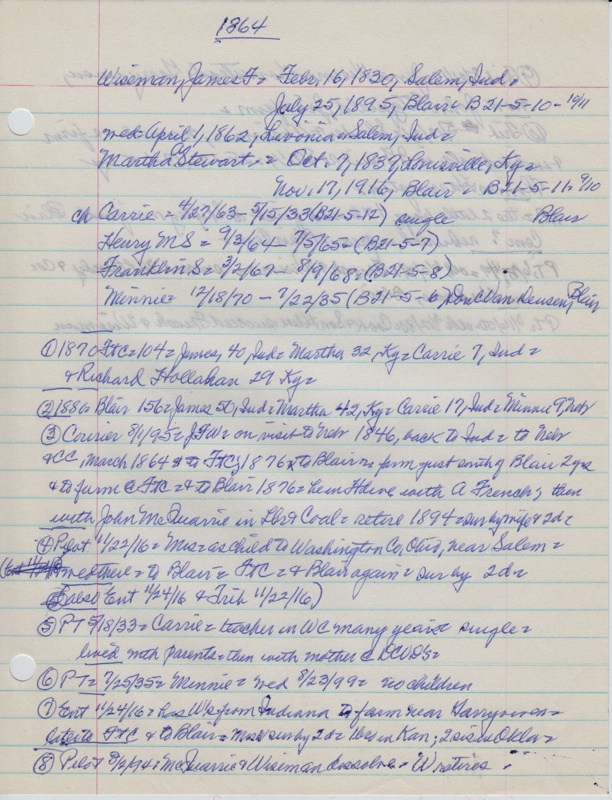 1864
Wiseman, James F = Feb. 16, 1830, Salem, Ind =
July 25, 1895, Blair = B21-5-10 - 10/11
wed April 1, 1862, Livonia = Salem, Ind =
Martha Stewart = Oct. 7, 1837, Louisville, Ky =
Nov. 17, 1916, Blair = B21-5-11 = 9/10
ch Carrie = 4/27/63 - 5/15/33 (B21-5-12) single Blair
Henry M S = 9/3/64 - 7/5/65 = (B21-5-7)
Franklin S = 3/2/67 - 8/9/68 = (B21-5-8)
Minnie = 12/18/70 - 7/22/35 (B21-5-6) Don C Van Deusen, Blair
① 1870 FtC = 104 = James, 40, Ind = Martha 32, Ky = Carrie 7, Ind =
& Richard Hollahan 29 Ky =
② 1880 Blair 156 = James 50, Ind = Martha 42, Ky = Carrie 17, Ind = Minnie 9, Neb
③ Courier 8/1/95 = JFW = on visit to Neb 1846, back to Ind = to Neb
& CC, March 1864 & to FtC; 1876 to Blair = farm just south of Blair 2 yrs
& to farm @ FtC = & to Blair 1876 = with A French; then
with John McQuarrie in Lbr & Coal = retire 1894 = sur by wife & 2d =
④ Pilot 11/22/16 = Mrs = as child to Washington Co, Ohio, near Salem =
wed there = to Blair = FtC = & Blair again = sur by 2d =
(also Ent 11/24/16 & Trib 11/22/16)
⑤ PT 5/18/33 = Carrie = teacher in WC many years = single =
lived with parents = then with mother @ DCVD's =
⑥ PT = 7/25/35 = Minnie = wed 8/23/99 = no children
⑦ Ent 11/24/16 = has Ws from Indiana to farm near
later to FtC & to Blair = Mrs W sur by 2d = 1 bro in Kan; 2 sis in Okla =
⑧ Pilot = McQuarrie & Wiseman dissolve = W retires =